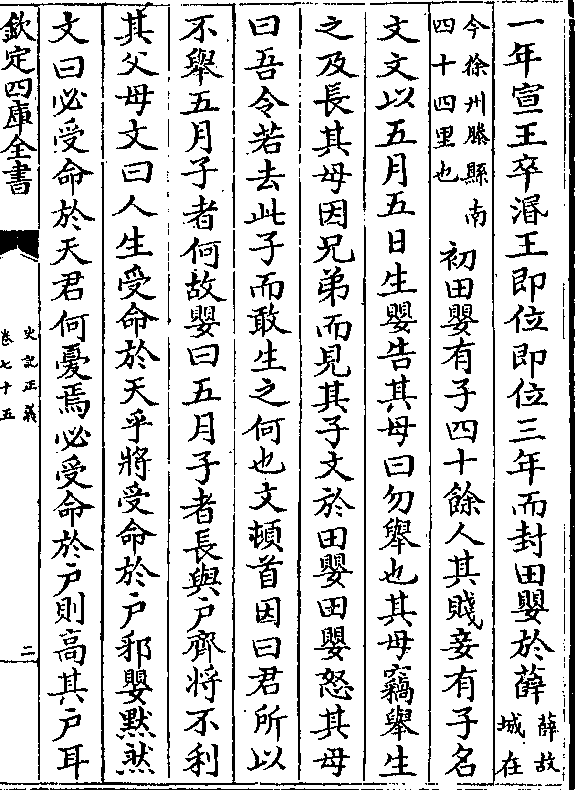 一年宣王卒湣王即位即位三年而封田嬰於薛薛故城在
今徐州滕縣南四十四里也初田嬰有子四十餘人其賤妾有子名
文文以五月五日生嬰告其母曰勿舉也其母竊舉生
之及長其母因兄弟而見其子文於田嬰田嬰怒其母
曰吾令若去此子而敢生之何也文頓首因曰君所以
不舉五月子者何故嬰曰五月子者長與戶齊將不利
其父母文曰人生受命於天乎將受命於戶邪嬰默然
文曰必受命於天君何憂焉必受命於戶則高其戶耳
欽定四庫全書 史記正義 卷七十五 二